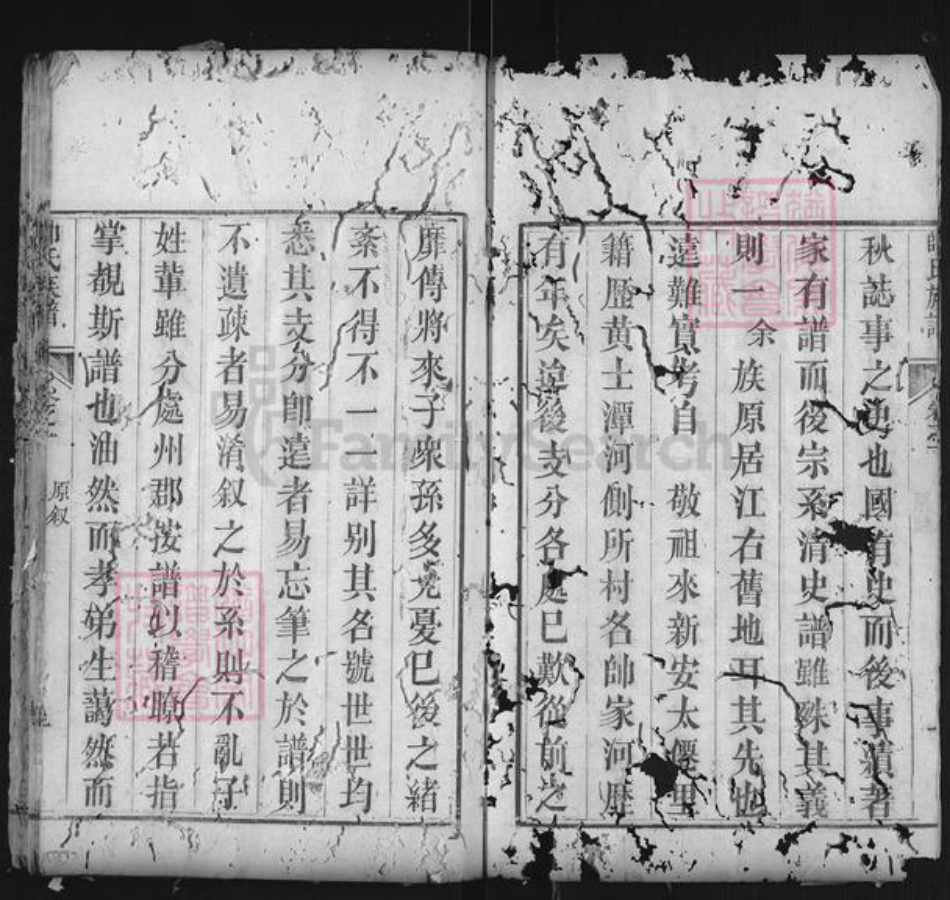 秋誌事之史也國有史而後事蹟著
家有譜而後宗系清史譜雖殊其義
則一余族原居江右舊地耳其先也
遠難實考自敬祖來新安太僊里
籍歷黄士潭河側所村名帥家河歷
有年矣追後支分各處巳歎從前之
靡傳將來子衆孫多克憂巳後之緒
紊不得不一一詳别其名號世世均
悉其支分卽遠者易忘筆之於譜則
不遺疎者易淆叙之於系則不亂子
姓軰雖分處州郡按譜以稽瞭若指
掌覩斯譜也油然而孝弟生藹然而
帥氏族譜
原叙
FamilySearch